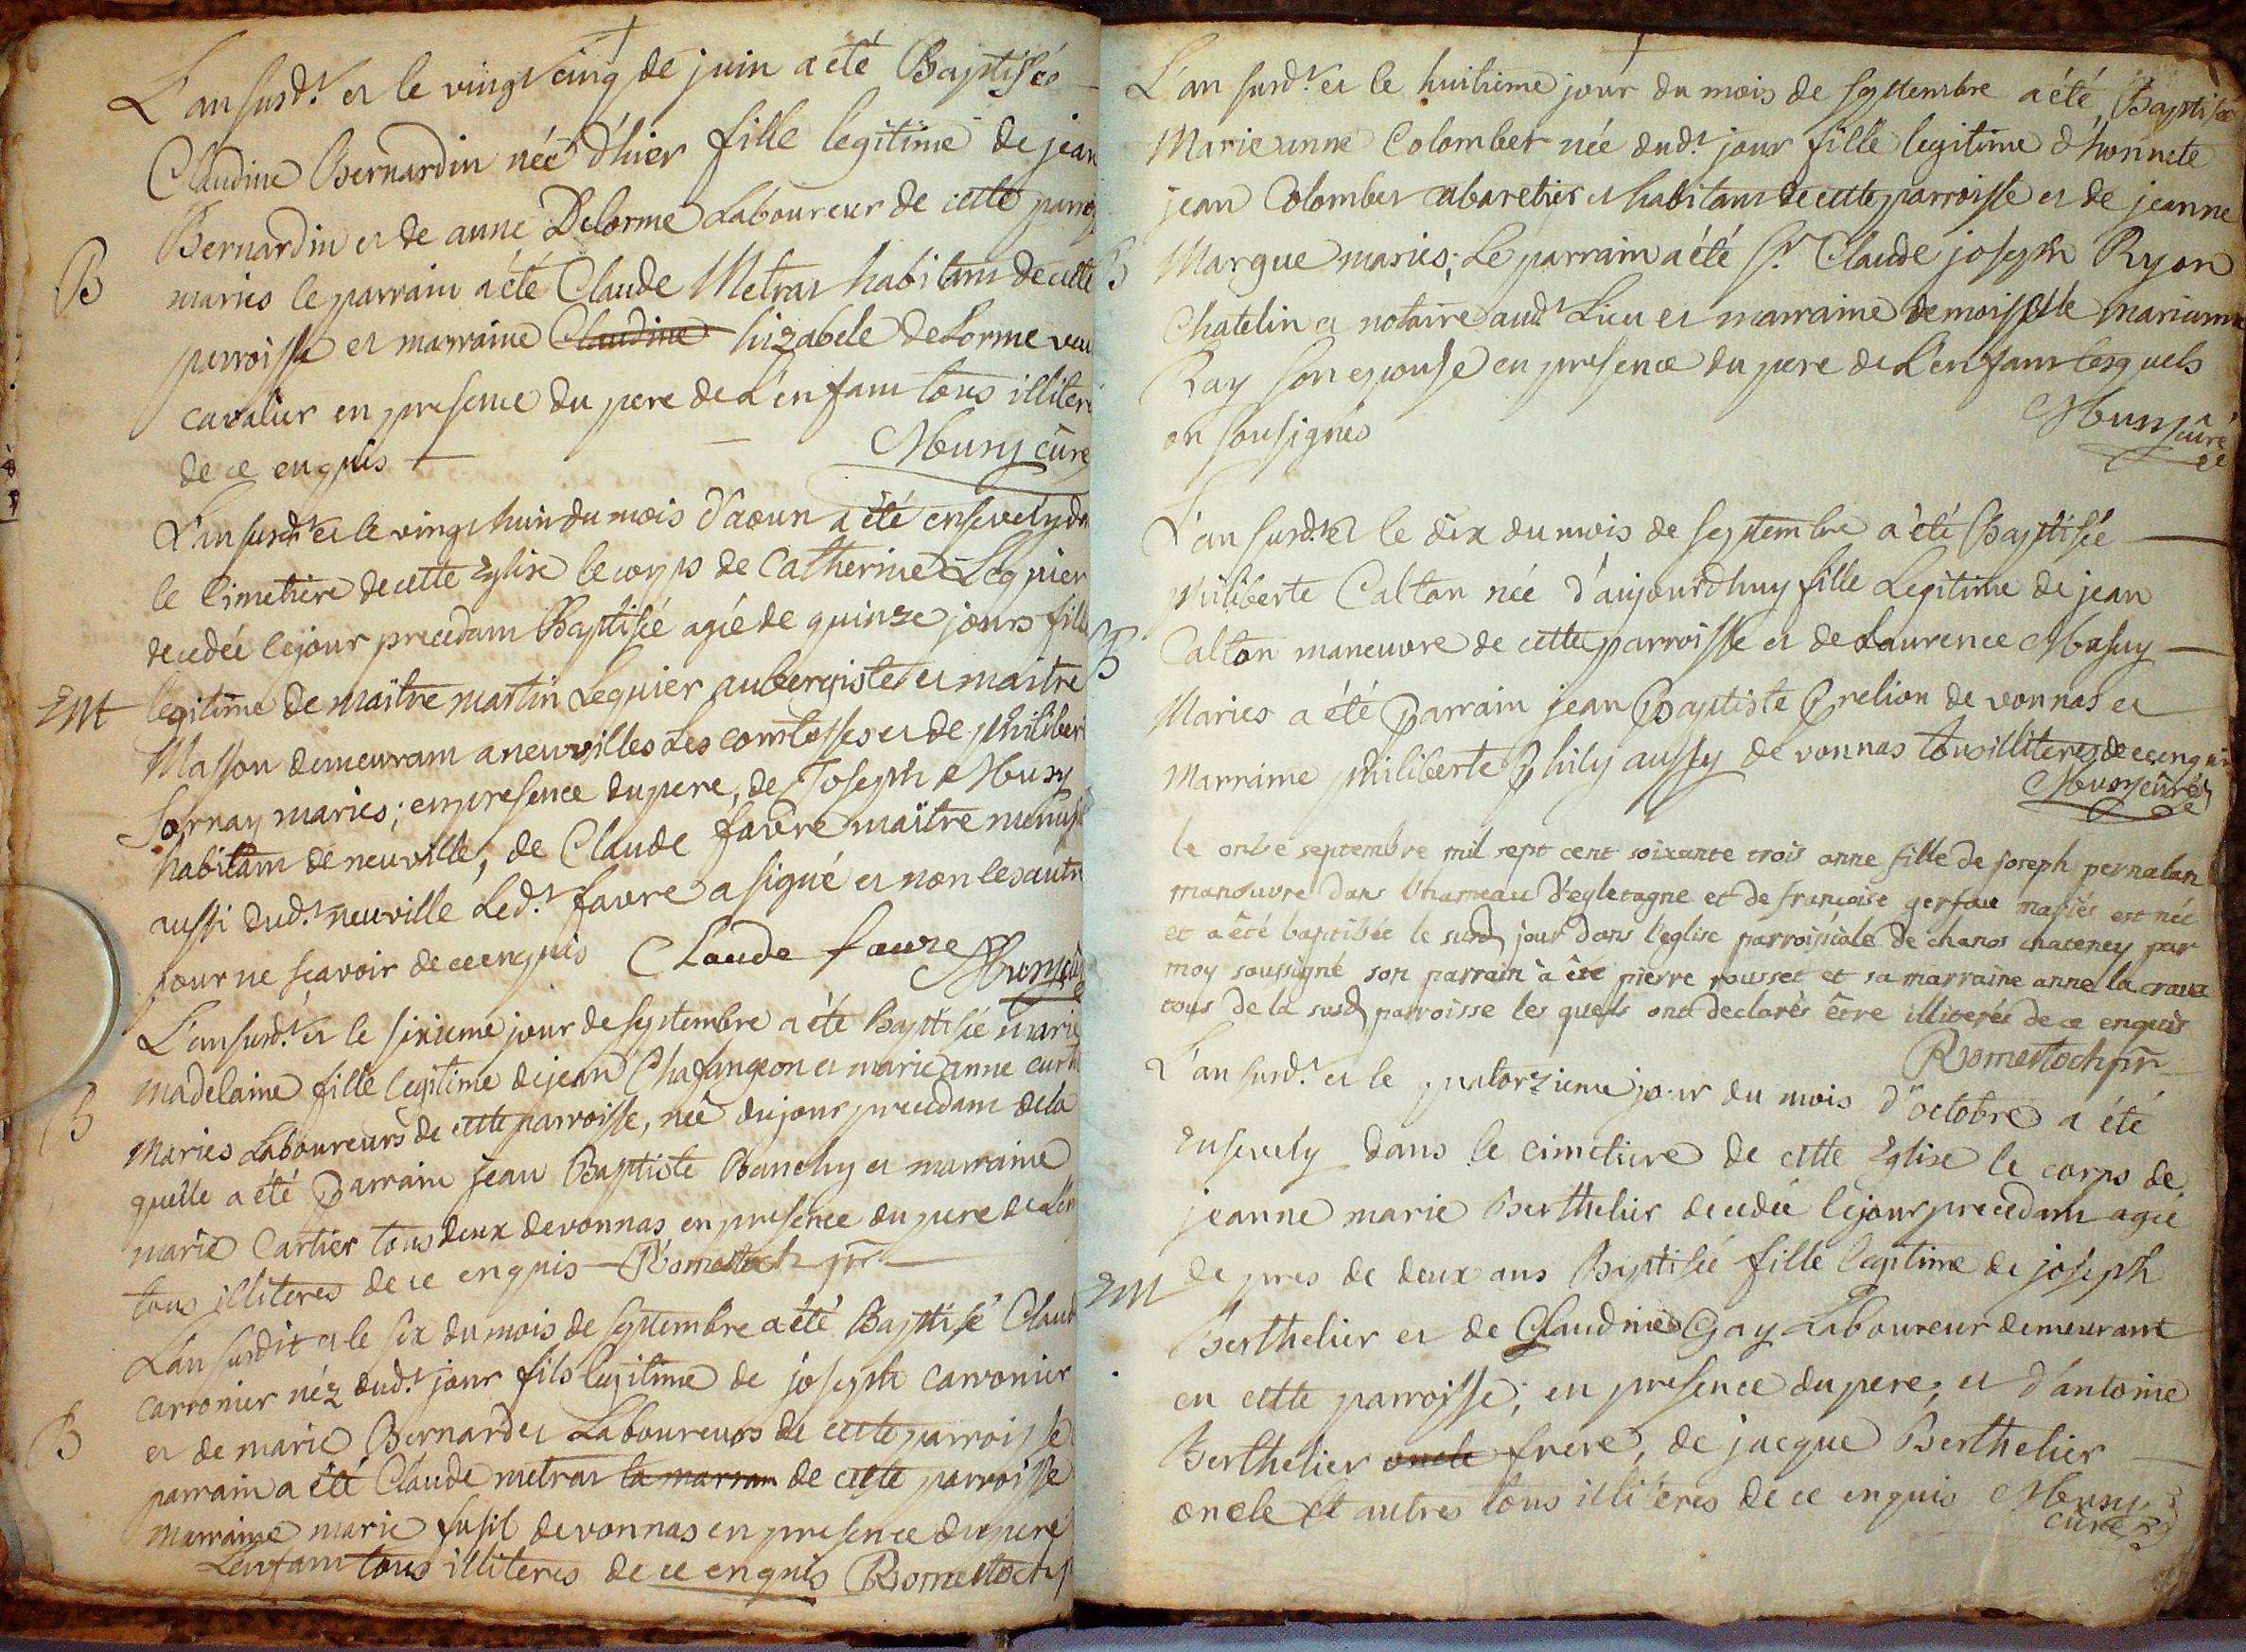 L'an susd.t et le vingt cinq de juin a été Baptisée
Claudine Bernardin née d'hier fille legitime de jean
Bernardin et de anne Delorme Laboureur de cette parroi
B
maries le parrain a été Claude Metrat habitant de cette
parroisse et marraine Claudine hizabele deLorme veu
cavalier en presence du pere de L'enfant tous illiter
de ce enquis
Mury curé
L'an susd.t et le vingt huit du mois d'aoust a été ensevely da
le Cimetiere de cette Eglise le corps de Catherine Lequier
decedée le jour precedant Baptisée agée de quinze jours fill
Ent legitime de maître martin Lequier aubergiste et maitre
Masson demeurant a neuvilles Les comtesses et de philiber
Sornay maries; en presence du pere, de Joseph Mury
habitant de neuville, de Claude favre maitre menusi
aussi dud.t neuville Led.t favre a signé et non les autre
pour ne sçavoir de ce enquis Claude favre Mury curé
L'an susd.t et le sixieme jour de septembre a été Baptisée marie
madelaine fille legitime de jean Chafangeon et marie anne curt
B
Maries Laboureurs de cette parroisse, née du jour precedant de la
quelle a été Parrain jean Baptiste Banchy et marraine
marie Cartier tous deux de vonnas en presence du pere de L'en
tous illiteres de ce enquis Romestoch ptr
L'an susdit et le six du mois de septembre a été Baptisé Claud
carronier néz dud.t jour fils legitime de joseph carronier
B
et de marie Bernardet Laboureurs de cette parroisse
parrain a été Claude metrat la marrain de cette parroisse
marraine marie fusil de vonnas en presence du pere
L'enfant tous illiteres de ce enquis Romestoch
L'an susd.t et le huitieme jour du mois de septembre a été Baptisée
Marie anne Colombet née dud.t jour fille legitime d'honnete
jean Colombet cabaretier et habitant de cette parroisse et de jeanne
B
Margue maries; Le parrain a été s.r Claude joseph Ryon
Chatelin et notaire aud.t Lieu et marraine demoiselle marianne
Ray son epouse en presence du pere de L'enfant lesquels
on sousignés
Mury curé
L'an susd.t et le dix du mois de septembre a été Baptisée
philiberte Calton née d'aujourdhuy fille Legitime de jean
B
Calton maneuvre de cette parroisse et de Laurence Masuy
Maries a été Parrain jean Baptiste Prelion de vonnas et
Marraine philiberte Phily aussy de vonnas tous illiteres de ce enquis
Mury curé
le onse septembre mil sept cent soixante trois anne fille de joseph pernalan
manouvre dans l'hameau d'egletagne et de francoise gerfau mariés est née
et a été baptisée le susd jour dans l'eglise parroissiale de chanos chateney par
moy soussigné son parrain à été pierre rousset et sa marraine anne la craux
tous de la susd parroisse les quels ont declarés être illiterés de ce enquis
Romestoch ptr
L'an susd.t et le quatorzieme jour du mois d'octobre a été
Ensevely dans le cimetiere de cette Eglise le corps de
jeanne marie Berthelier decedée le jour precedant agée
Ent de pres de deux ans Baptisée fille legitime de joseph
Berthelier et de Claudine Gay Laboureur demeurant
en cette parroisse; en presence du pere; et d'antoine
Berthelier oncle frere, de jacque Berthelier
oncle et autres tous illiteres de ce enquis Mury
curé